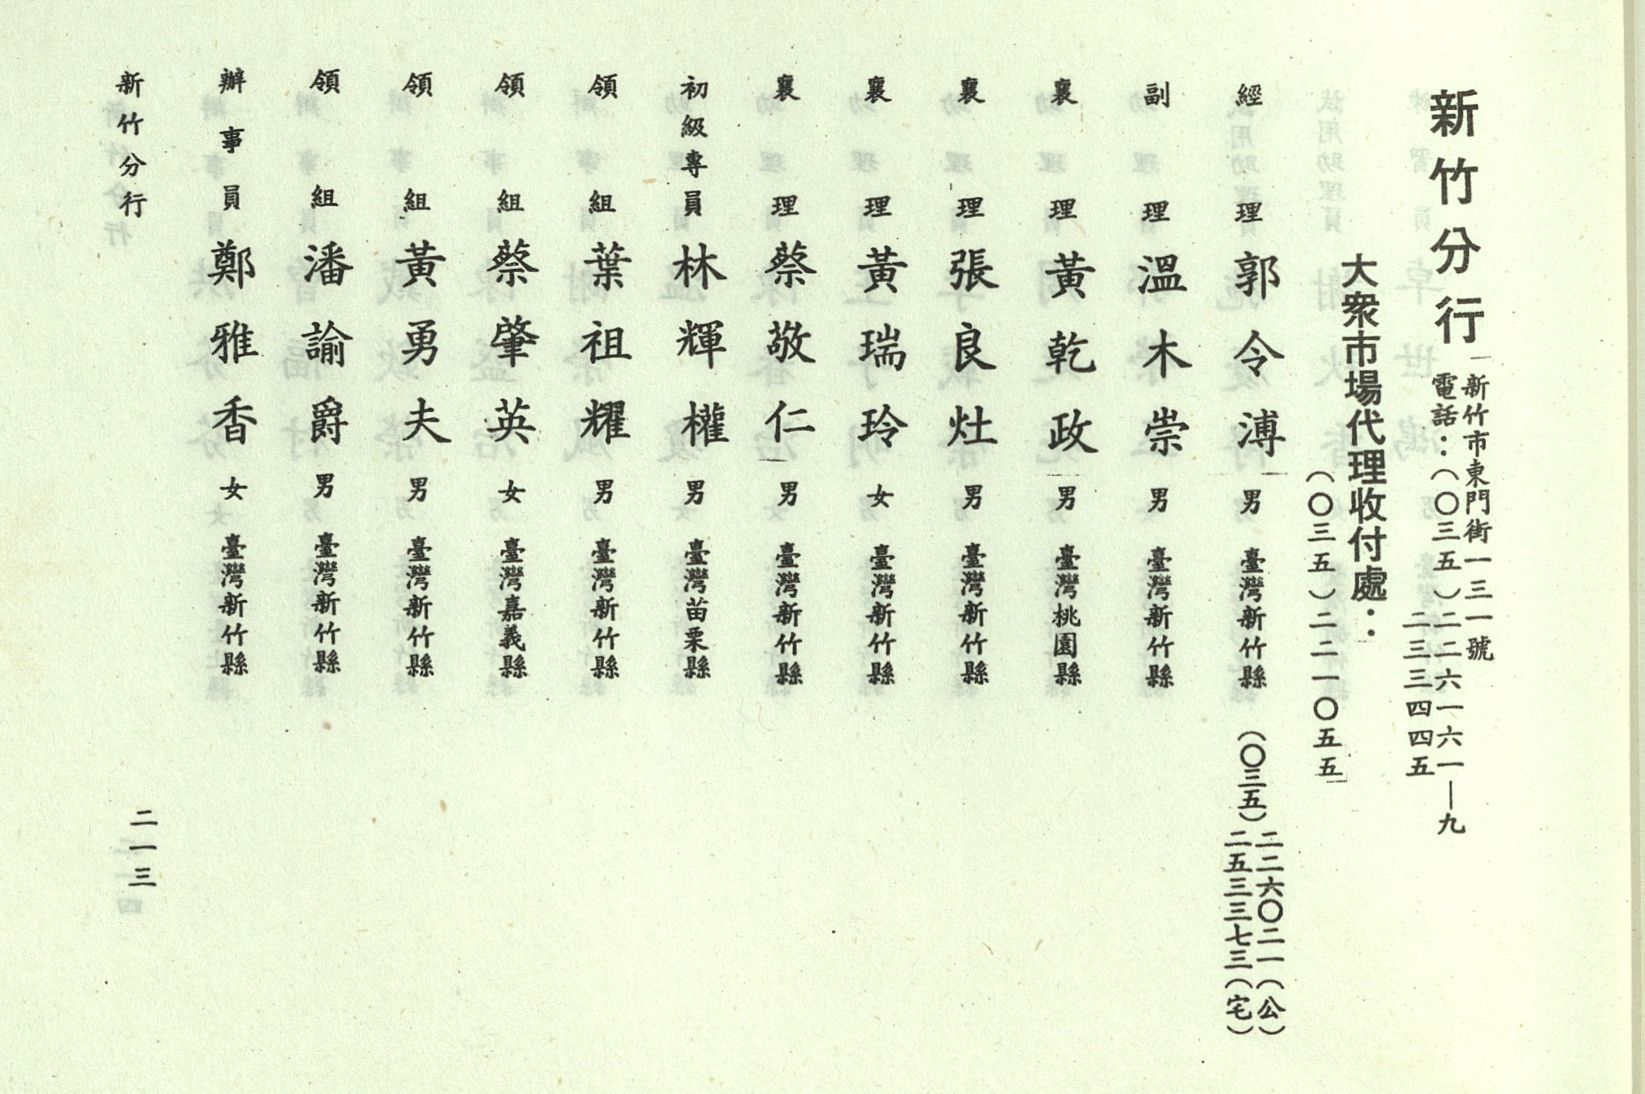 新竹分行
新竹市東門街一三一號
電話：（〇三五）二二六一六一—九
二三三四四五
大衆市場代理收付處：
（〇三五）二二一〇五五
經理 郭令溥 男 臺灣新竹縣 （〇三五）二二六〇二一（公）
二五三三七三（宅）
副理 溫木崇 男 臺灣新竹縣
襄理 黃乾政 男 臺灣桃園縣
襄理 張良灶 男 臺灣新竹縣
襄理 黃瑞玲 女 臺灣新竹縣
襄理 蔡敬仁 男 臺灣新竹縣
初級專員 林輝權 男 臺灣苗栗縣
領組 葉祖耀 男 臺灣新竹縣
領組 蔡肇英 女 臺灣嘉義縣
領組 黃勇夫 男 臺灣新竹縣
領組 潘諭爵 男 臺灣新竹縣
辦事員 鄭雅香 女 臺灣新竹縣
新竹分行
二一三